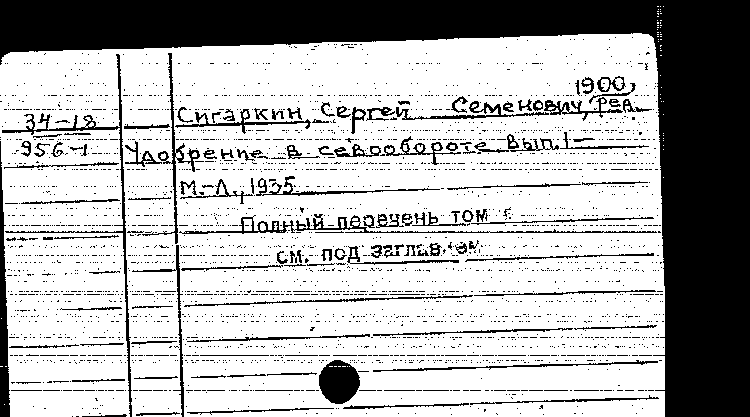 1900,
34-18 Сигаркин, Сергей Семенович, ред.
956-1 Удобрение в севообороте Вып. 1-
М.-Л., 1935
Полный перечень том
см. под заглавием